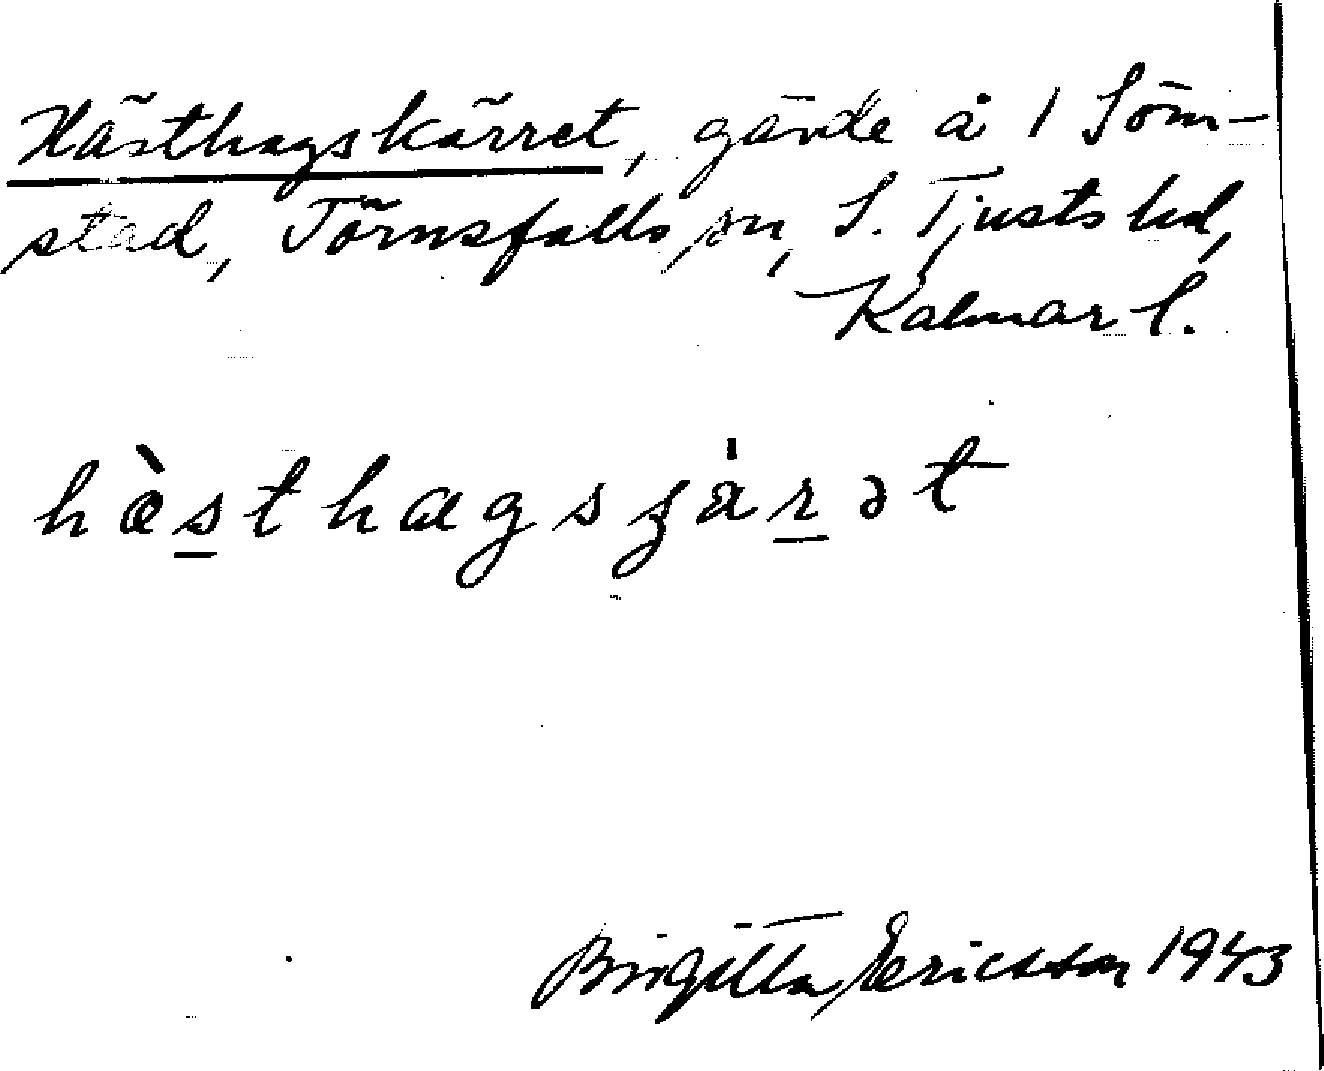 Hästhagskärret, gärde å 1 Söm-
stad, Törnsfalls sn, S. Tjusts hd,
Kalmar l.
hàsthagsʒȧrət
Birgitta Ericsson 1943